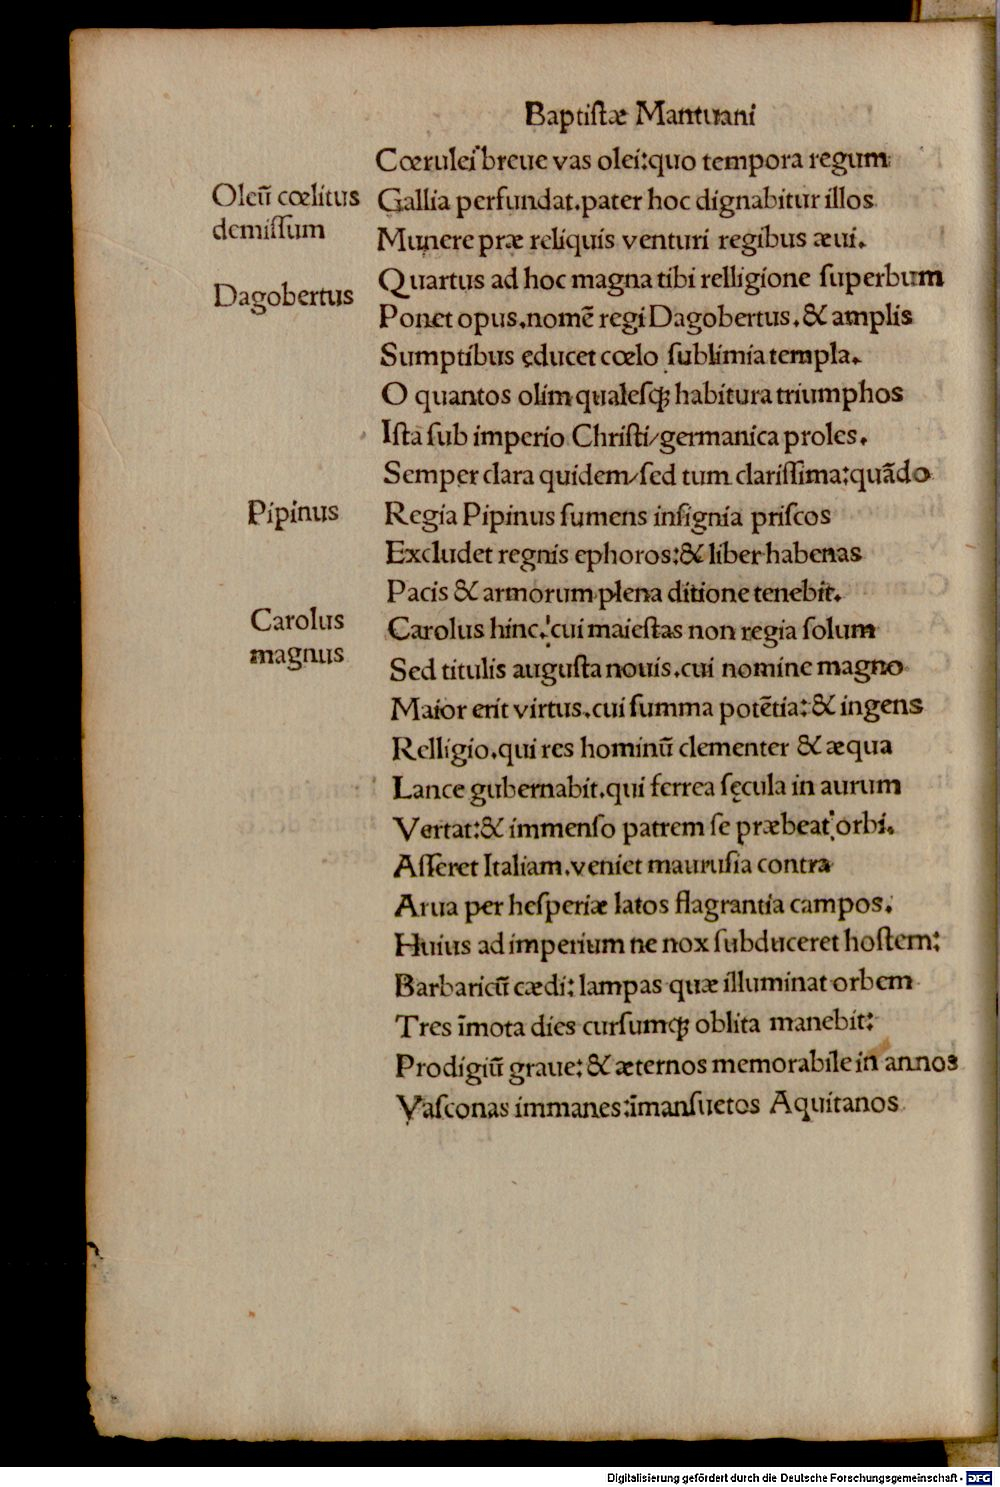 Baptistæ Mantuani
Cœrulei breue vas olei: quo tempora regum
Oleū cœlitus
demissum
Gallia perfundat. pater hoc dignabitur illos
Munere præ reliquis venturi regibus æui.
Dagobertus
Quartus ad hoc magna tibi relligione superbum
Ponet opus. nomē regi Dagobertus. & amplis
Sumptibus educet cœlo sublimia templa.
O quantos olim qualesqꝫ habitura triumphos
Ista sub imperio Christi/ germanica proles.
Semper clara quidem/ sed tum clarissima: quādo
Pipinus
Regia Pipinus sumens insignia priscos
Excludet regnis ephoros: & liber habenas
Pacis & armorum plena ditione tenebit.
Carolus
magnus
Carolus hinc. cui maiestas non regia solum
Sed titulis augusta nouis. cui nomine magno
Maior erit virtus. cui summa potētia: & ingens
Relligio. qui res hominū clementer & æqua
Lance gubernabit. qui ferrea sęcula in aurum
Vertat: & immenso patrem se præbeat orbi.
Asseret Italiam. veniet maurusia contra
Arua per hesperiæ latos flagrantia campos.
Huius ad imperium ne nox subduceret hostem:
Barbaricū cædi: lampas quæ illuminat orbem
Tres īmota dies cursumqꝫ oblita manebit:
Prodigiū graue: & æternos memorabile in annos
Vasconas immanes: īmansuetos Aquitanos
Digitalisierung gefördert durch die Deutsche Forschungsgemeinschaft - DFG